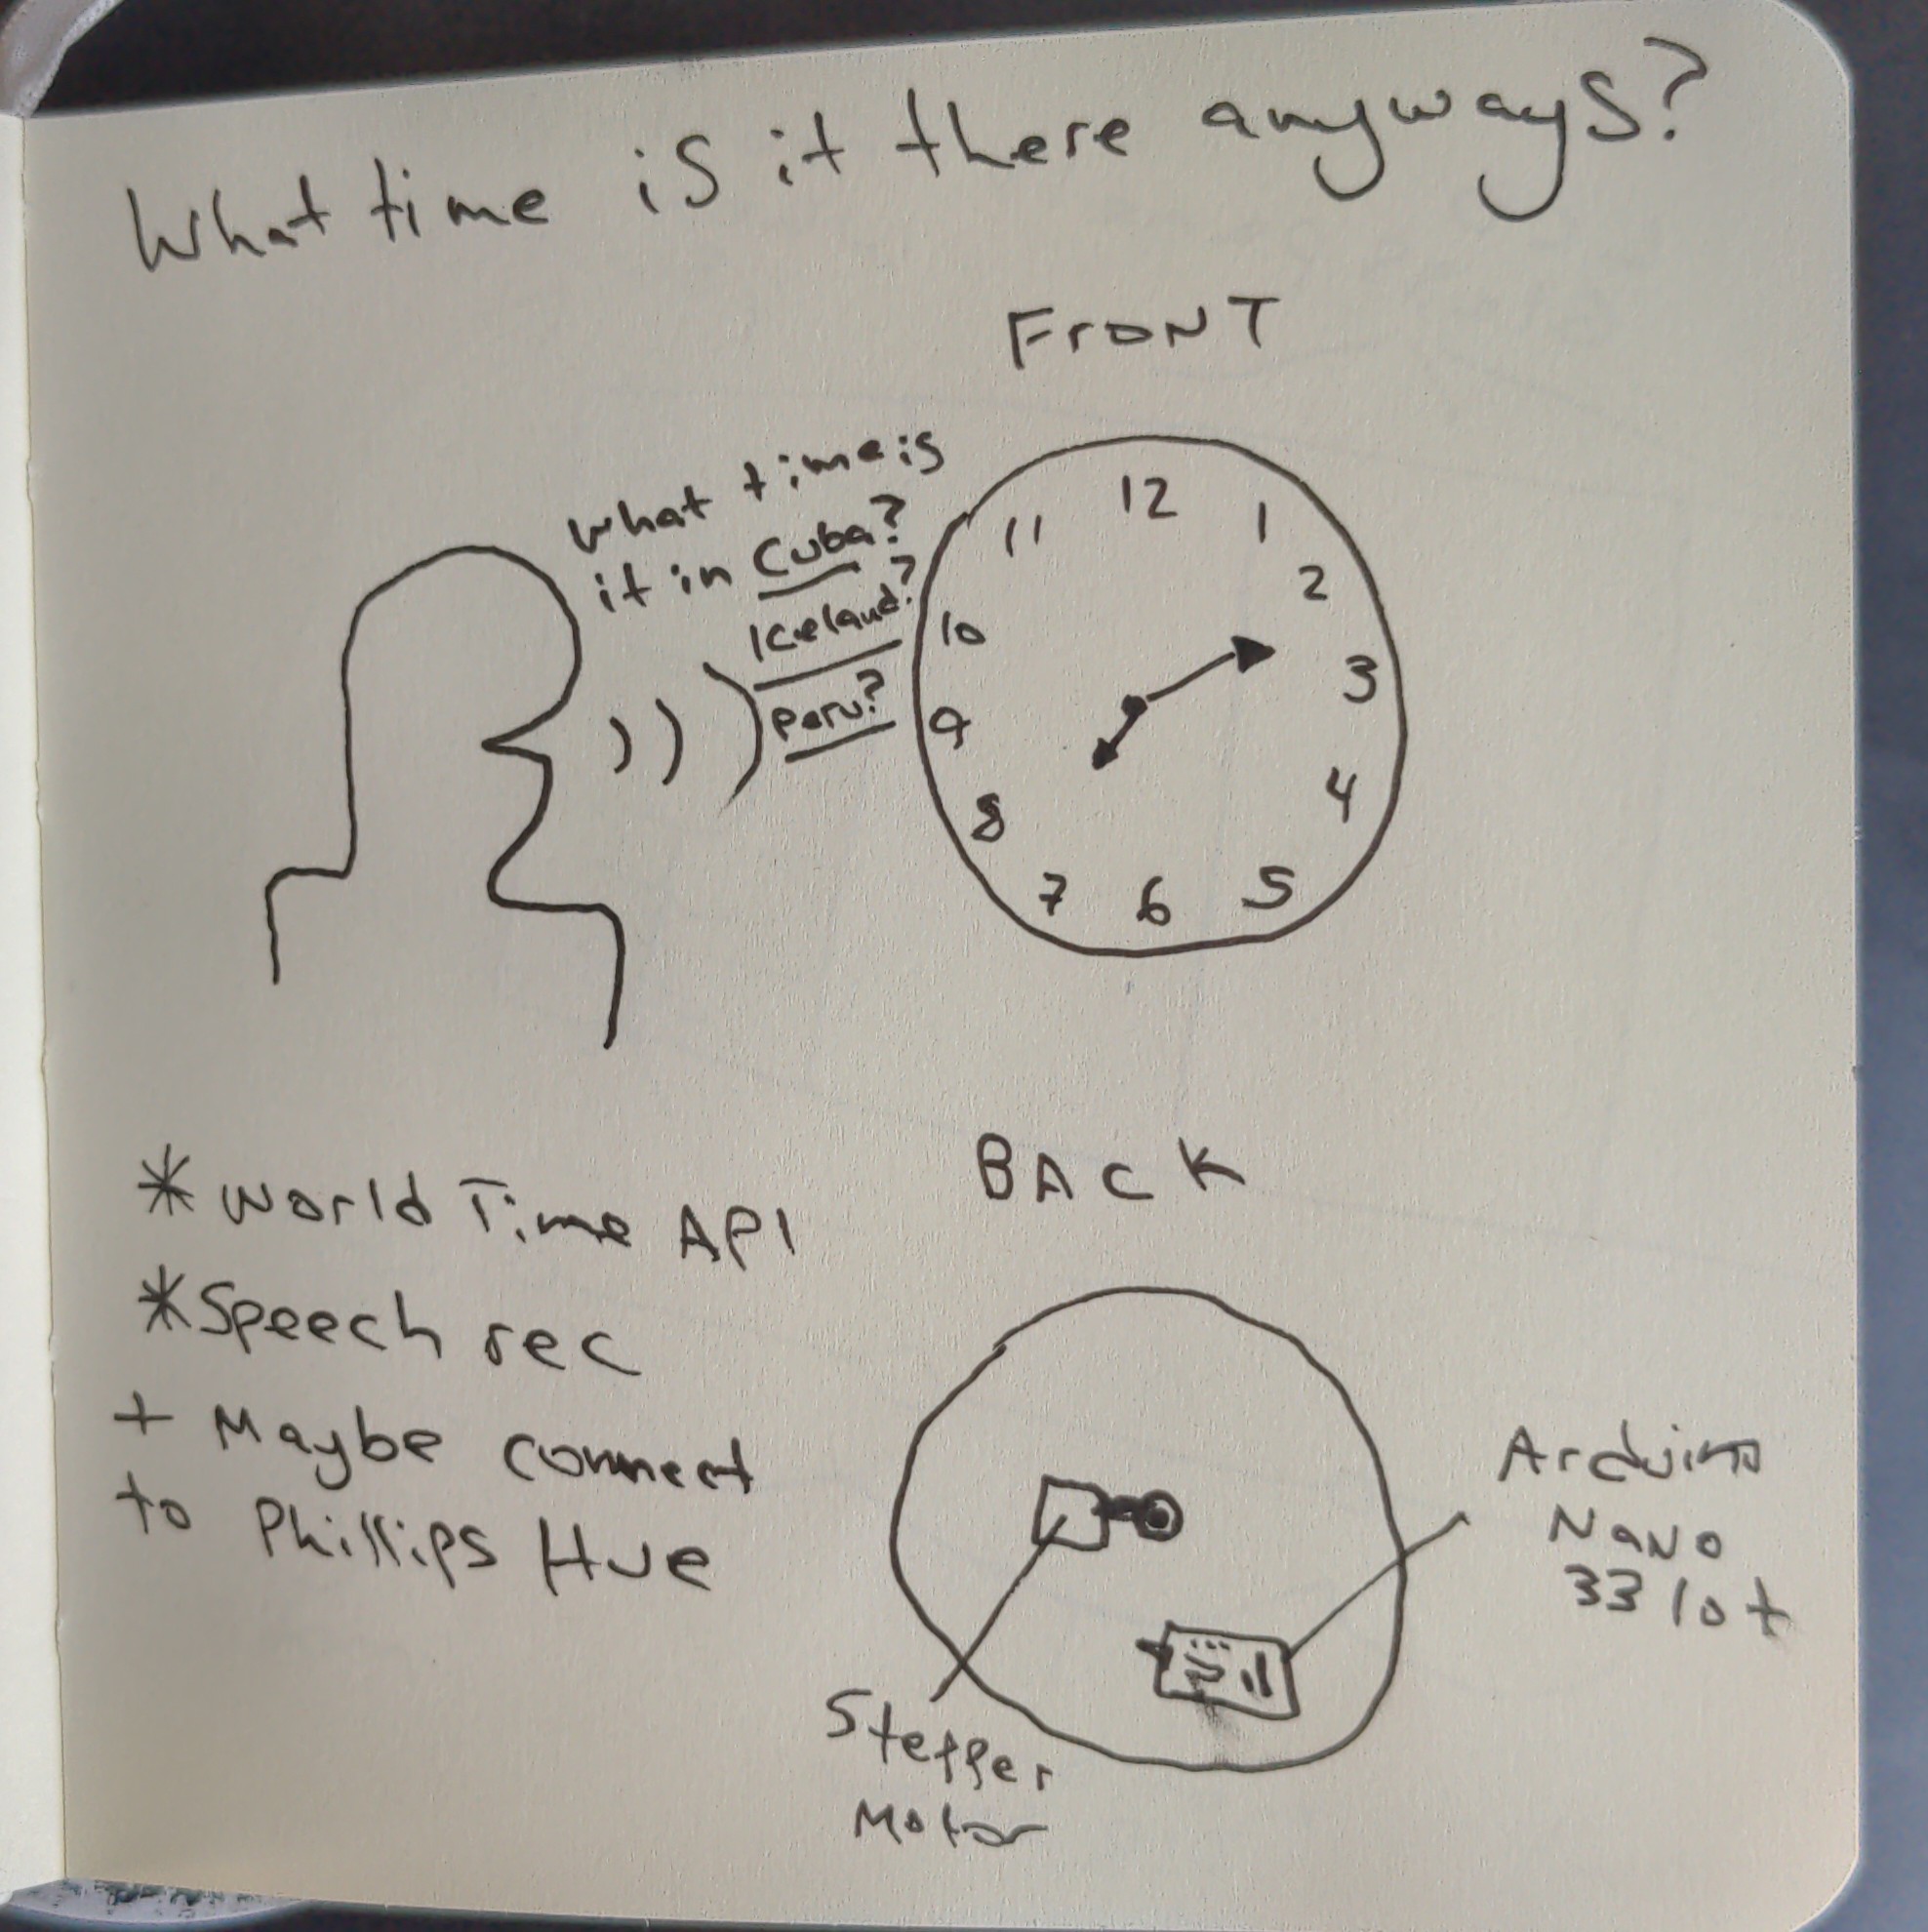 What time is it there anyways?
FronT
what time is
it in Cuba?
Iceland?
peru?
12
1
2
3
4
5
6
7
8
9
10
11
* World Time API
* Speech rec
+ Maybe connect
to Phillips Hue
BACK
Arduino
NaNo
33 Iot
Stepper
Motor